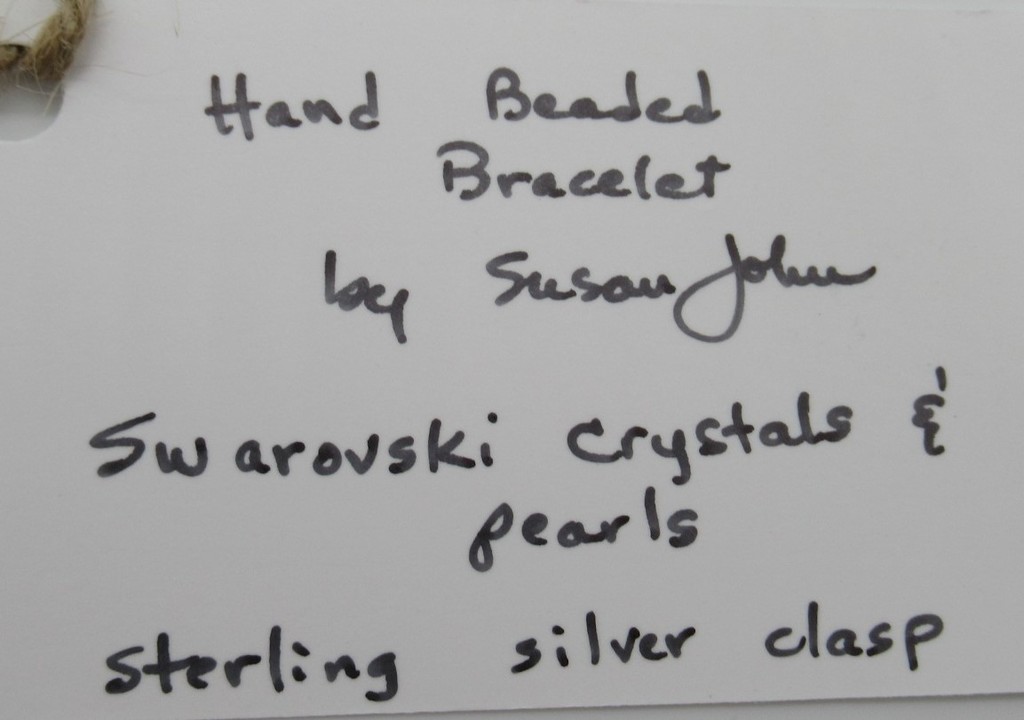 Hand Beaded
Bracelet
by Susan John
Swarovski Crystals &
pearls
sterling silver clasp